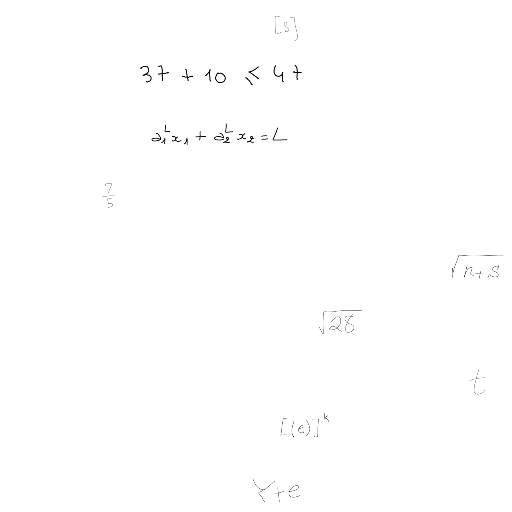 [s]
3t + 10 < 4t
a₁ᴸx₁ + a₂ᴸx₂ = L
7/5
√(r+s)
√28
t
[(e)]ᵏ
Y+e